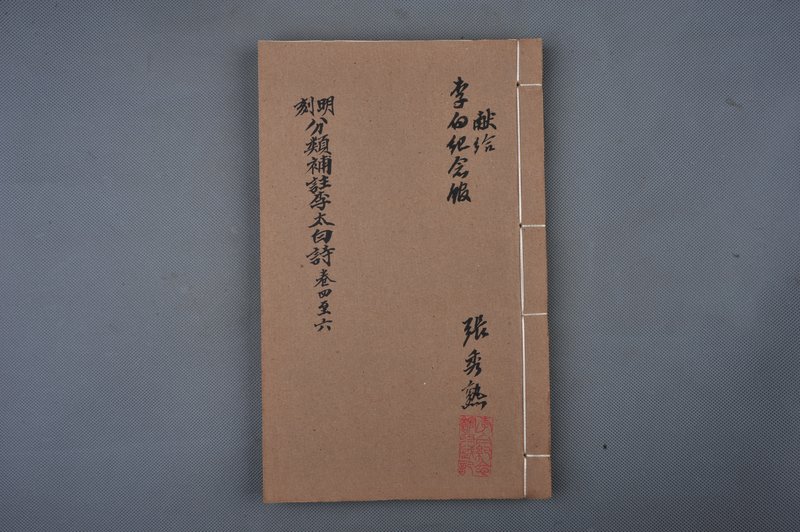 献给
李白纪念馆
张秀熟
明刻
分類補註李太白詩卷四至六